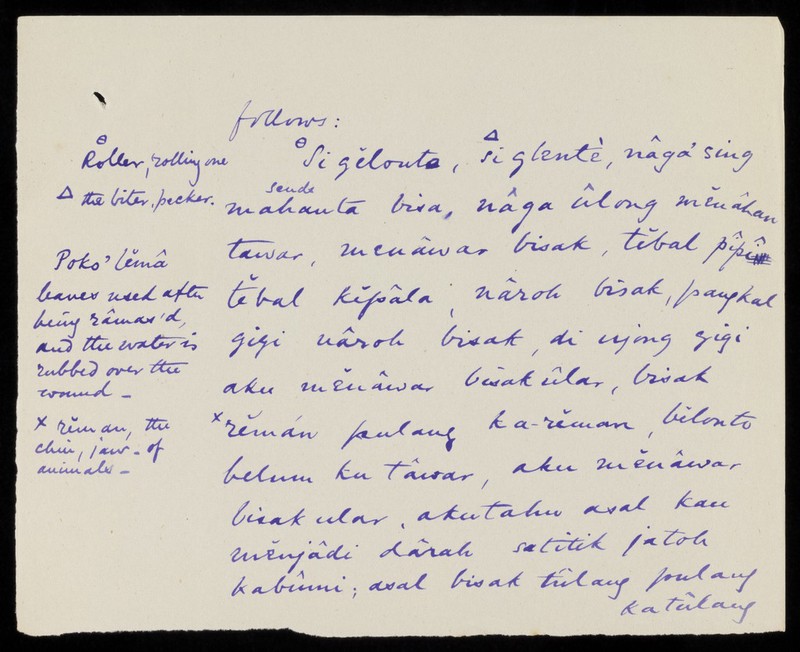 follows:
⊖ Roller, rolling one
△ the biter, pecker.
Poko' lĕmâ
leaves used after
being râmas'd,
and the water is
rubbed over the
wound –
x rĕman, the
chin, jaw – of
animals –
⊖ Si gĕlonte, △ si glentè, nâga' sing
senda
mahanta bisa, nâga ûlong mĕnâhan
tawar, menâwar bisak, tĕbal pîpî
tĕbal kĕpâla, nâroh bisak, pangkal
gigi nâroh bisak, di ujong gigi
aku mĕnâwar bisak ûlar, bisak
x rĕmán pulang ka-rĕman, bĕlonto
belum ku tâwar, aku mĕnâwar
bisak ular, aku tahu asal kau
mĕnjâdi dârah satitik jatoh
kabûmi; asal bisak tûlang pulang
katûlang